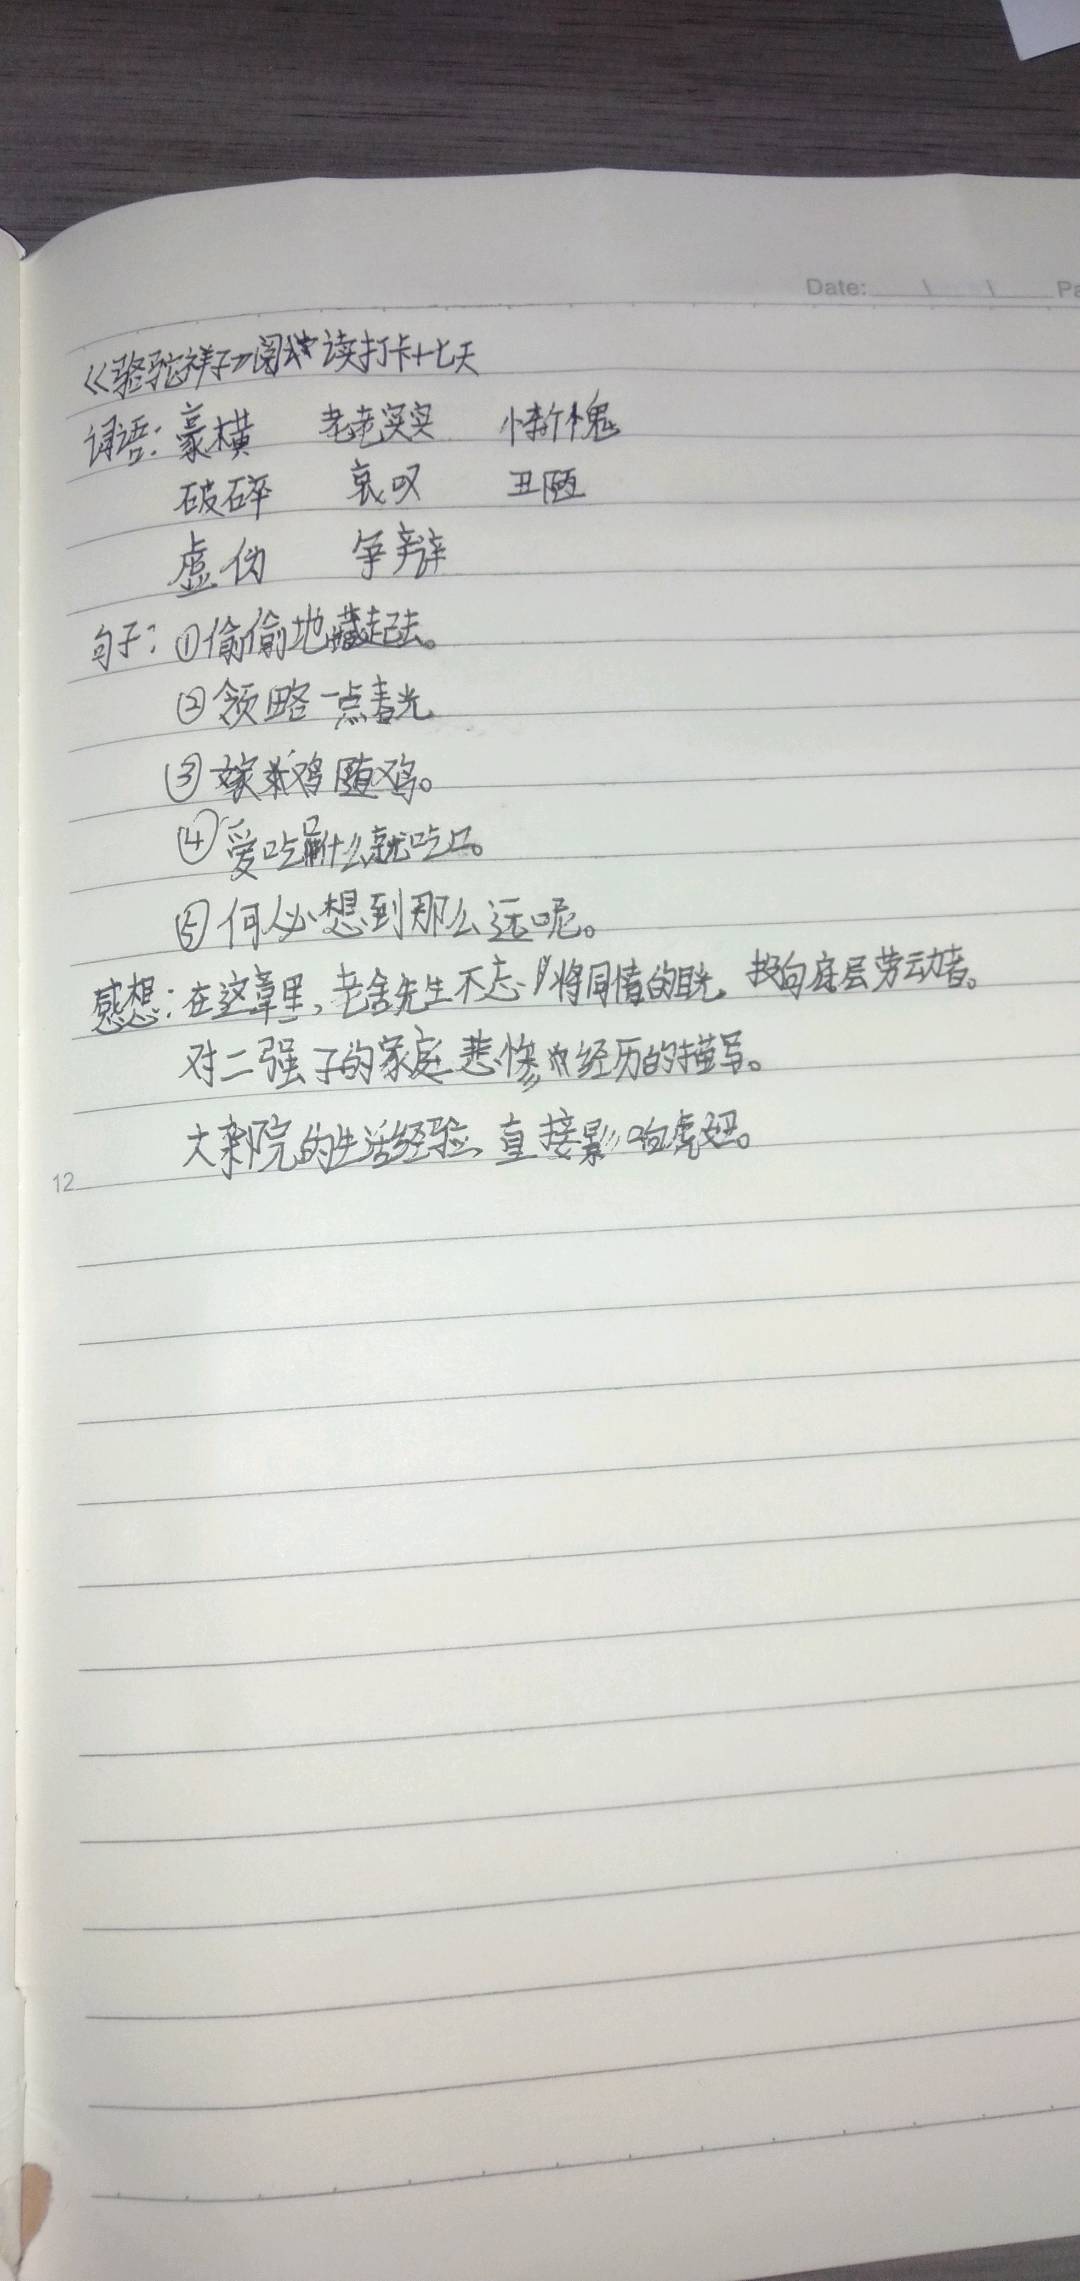 Date: \ \ Pa
《骆驼祥子》阅读打卡十七天
词语：豪横 老老实实 惭愧
破碎 哀叹 丑陋
虚伪 争辩
句子：①偷偷地藏起去。
②领略一点春光
③嫁鸡随鸡。
④爱吃什么就吃口。
⑤何必想到那么远呢。
感想：在这章里，老舍先生不忘将同情的眼光，投向底层劳动者。
对二强子的家庭悲惨经历的描写。
大杂院的生活经验，直接影响虎妞。
12